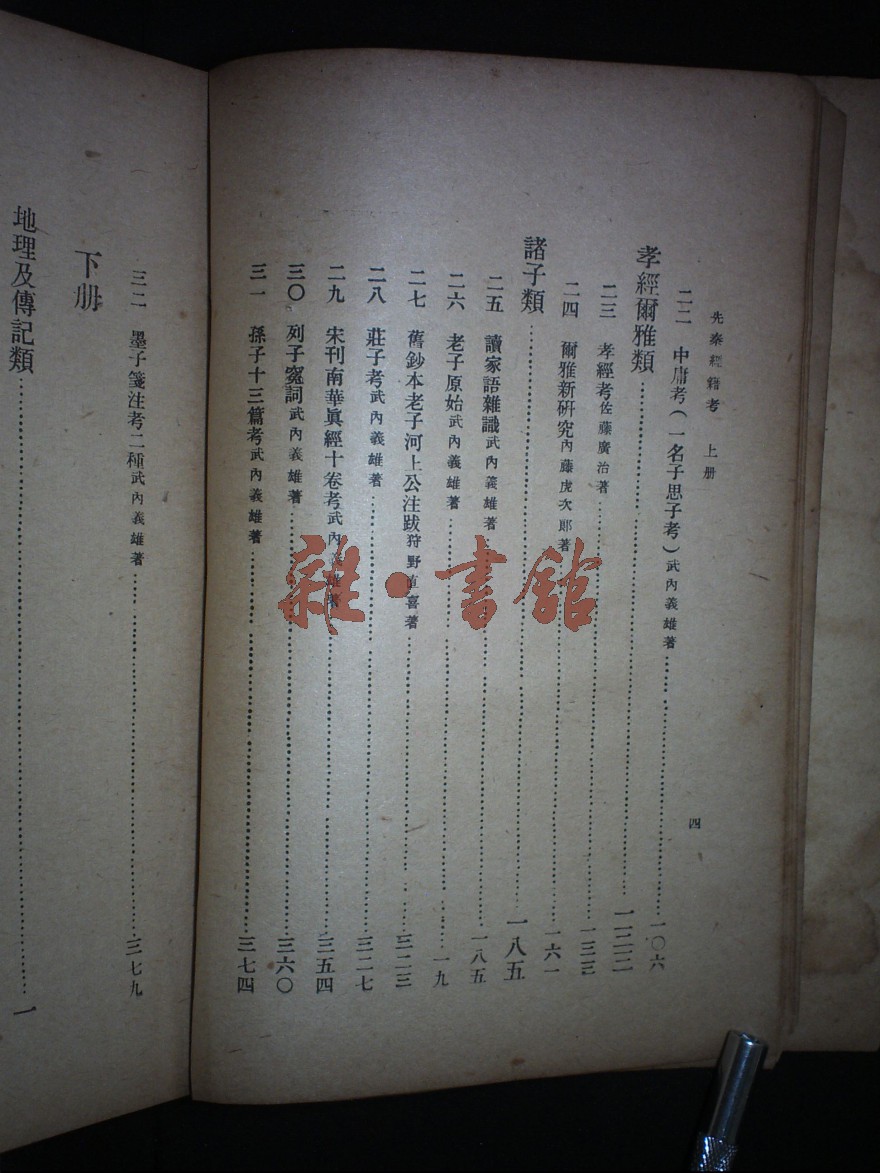 先秦經籍考　上册
四
二二　中庸考(一名子思子考)武內義雄著……一〇六
孝經爾雅類……一二二
二三　孝經考佐藤廣治著……一二三
二四　爾雅新硏究內藤虎次郎著……一六一
諸子類……一八五
二五　讀家語雜識武內義雄著……一八五
二六　老子原始武內義雄著……一九
二七　舊鈔本老子河上公注跋狩野直喜著……三二三
二八　莊子考武內義雄著……三二七
二九　宋刊南華眞經十卷考武內義雄著……三五四
三〇　列子寃詞武內義雄著……三六〇
三一　孫子十三篇考武內義雄著……三七四
三二　墨子箋注考二種武內義雄著……三七九
下册
地理及傳記類……一
雜·書館